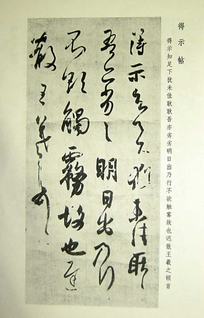 得示帖
得示知足下犹未佳耿耿吾亦劣劣明日出乃行不欲触雾故也迟散王羲之顿首
得示知足下猶未佳耿耿
吾亦劣劣明日出乃行
不欲觸霧故也遲
散王羲之頓首